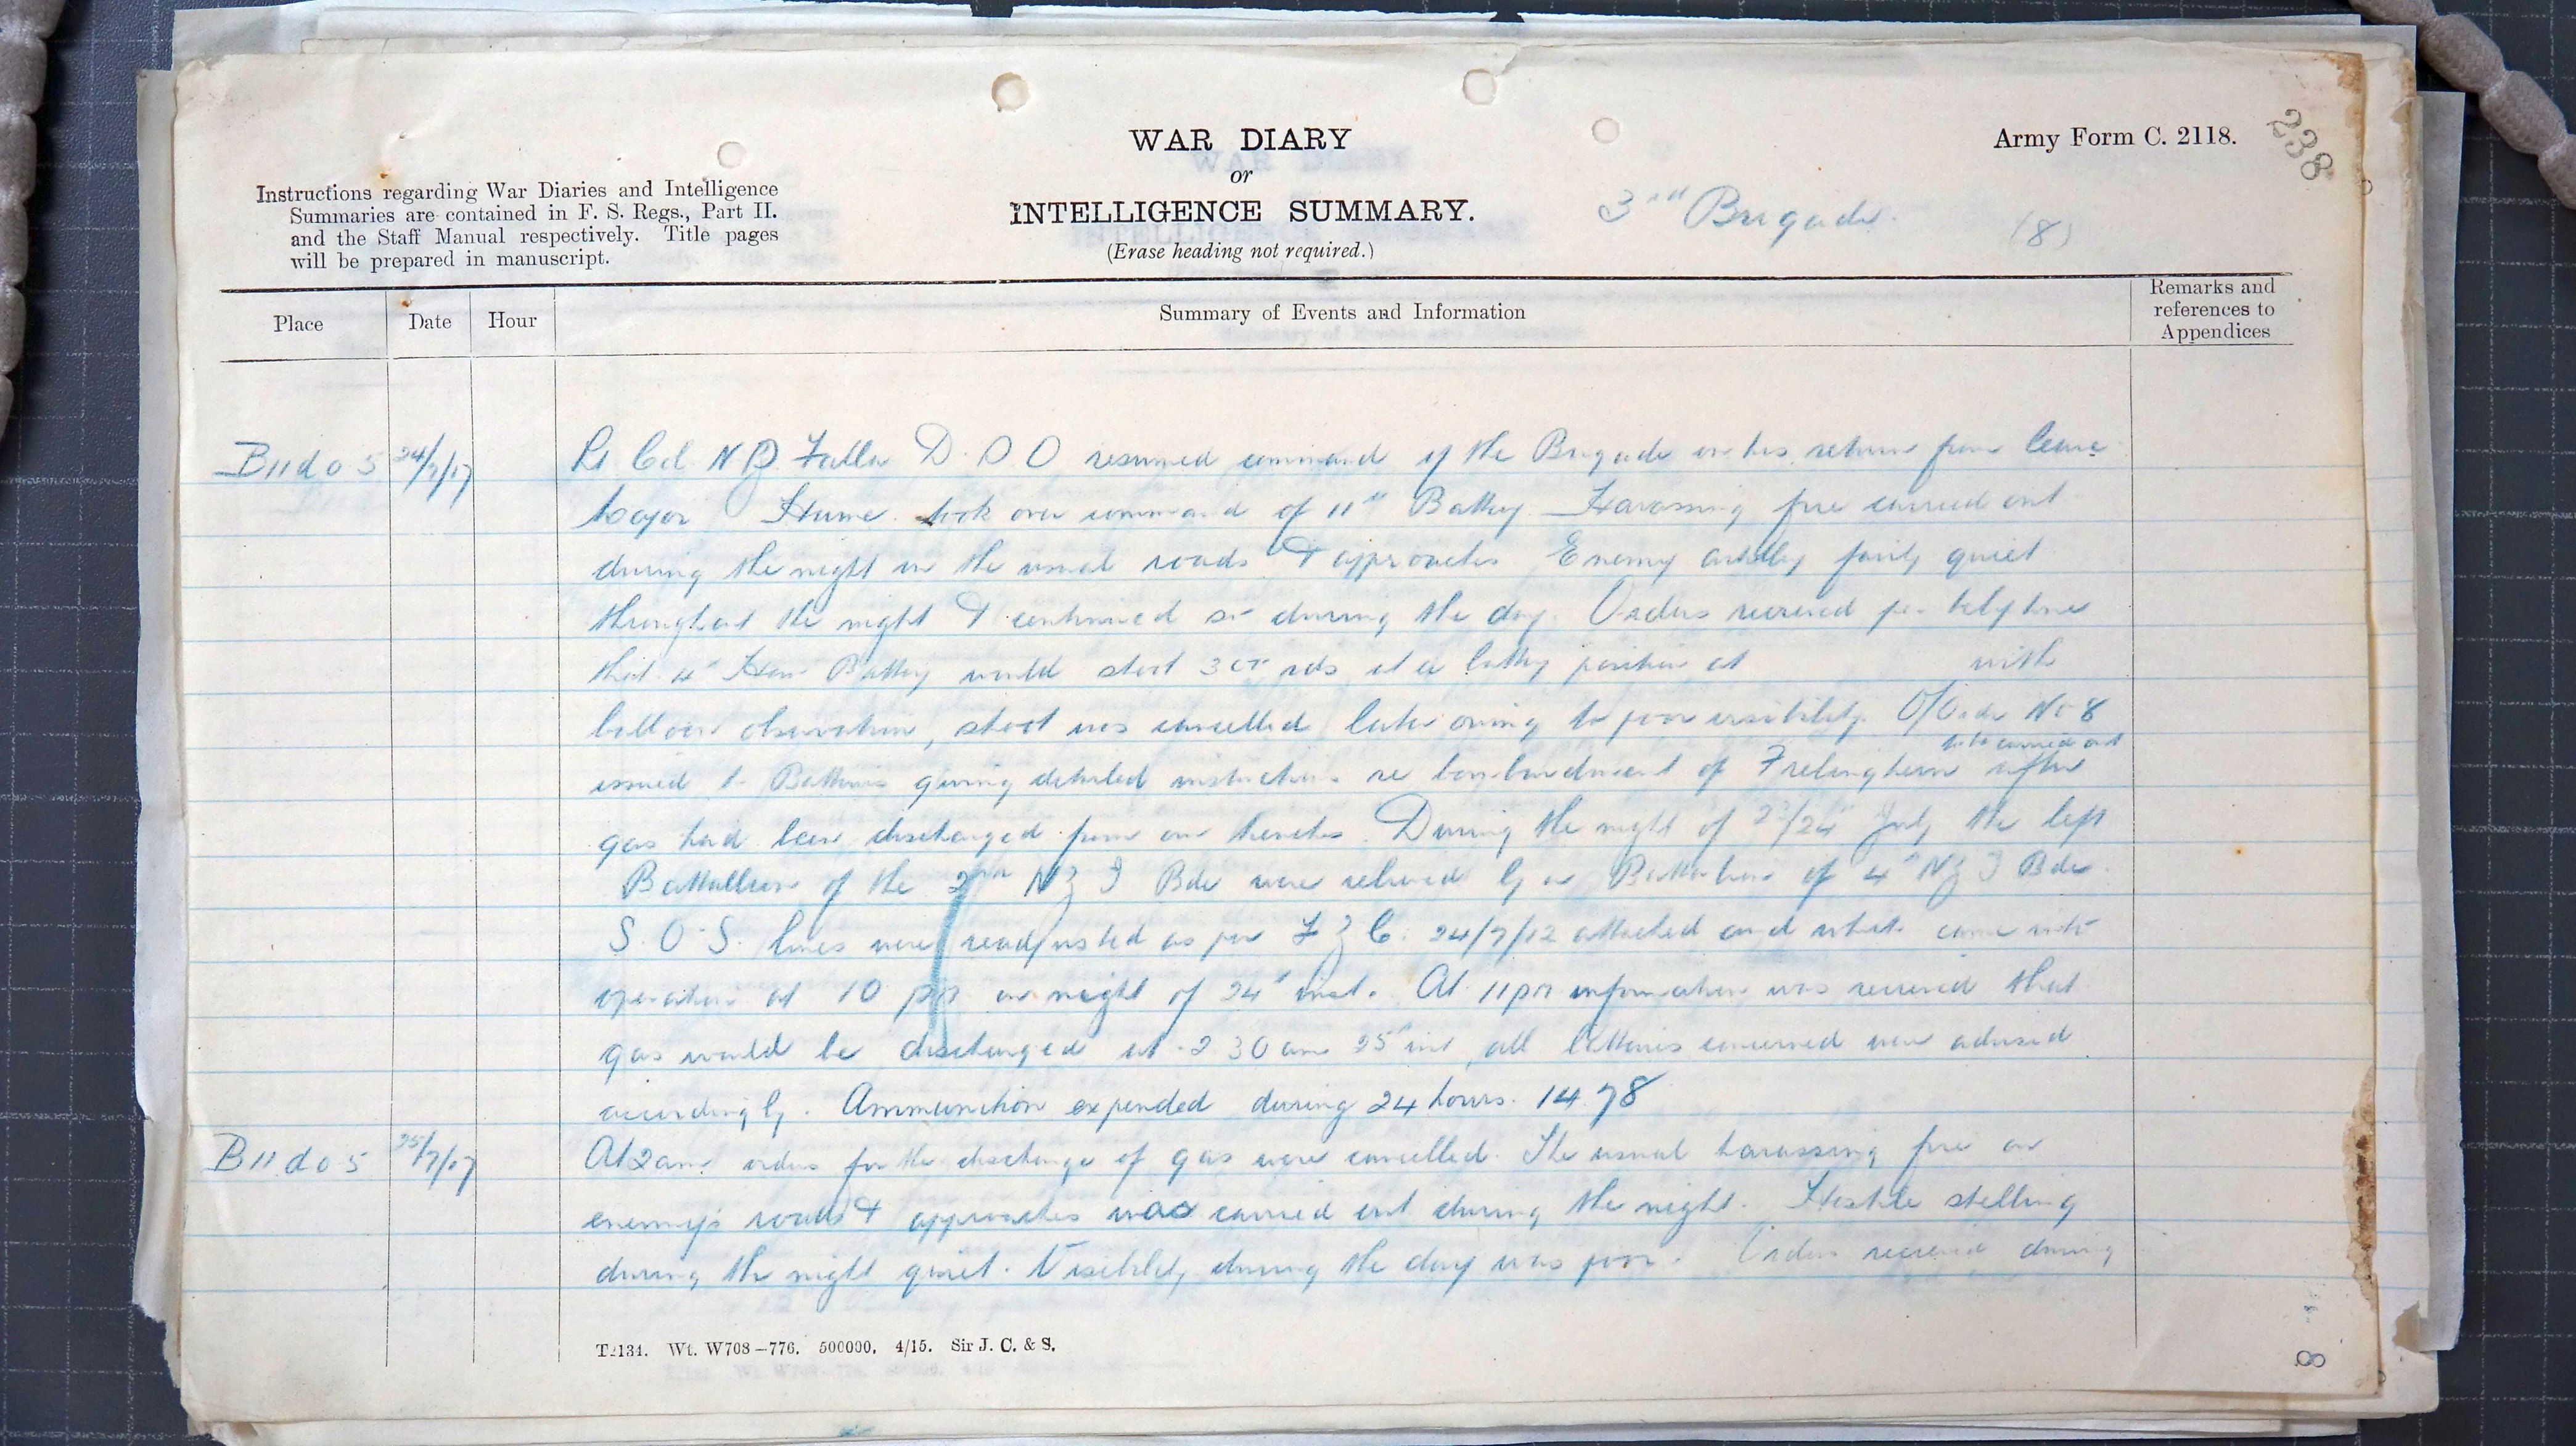 238
WAR DIARY
or
INTELLIGENCE SUMMARY.
(Erase heading not required.)
Army Form C. 2118.
Instructions regarding War Diaries and Intelligence
Summaries are contained in F. S. Regs., Part II.
and the Staff Manual respectively. Title pages
will be prepared in manuscript.
3rd Brigade.
(8)
Place
Date
Hour
Summary of Events and Information
Remarks and
references to
Appendices
B11d05 24/7/17
Lt Col N B Falla D S O resumed command of the Brigade on his return from leave
Major Hume took over command of 11th Battery Harassing fire carried out
during the night on the usual roads & approaches Enemy artillery fairly quiet
throughout the night & continued so during the day. Orders received per telephone
that 4th How Battery would shoot 300 rds at a battery position at with
balloon observation, shoot was cancelled later owing to poor visibility. O/Order No 8
to be carried out
issued to Batteries giving detailed instructions re bombardment of Frelinghein after
gas had been discharged from our trenches. During the night of 23/24th July the left
Battallion of the 2nd N Z I Bde were relieved by a Battalion of 4th N Z I Bde.
S. O. S. lines were readjusted as per F Z C. 24/7/12 attached and which came into
operation at 10 pm on night of 24th inst. At 11pm information was received that
gas would be discharged at 2 30 am 25th inst, all batteries concerned were advised
accordingly. Ammunition expended during 24 hours. 1478
B11d05 25/7/17
At 2 am orders for the discharge of gas were cancelled. The usual harassing fire on
enemy's roads & approaches was carried out during the night. Hostile shelling
during the night quiet. Visibility during the day was poor. Orders received during
T2134. Wt. W708—776. 500000. 4/15. Sir J. C. & S.
8